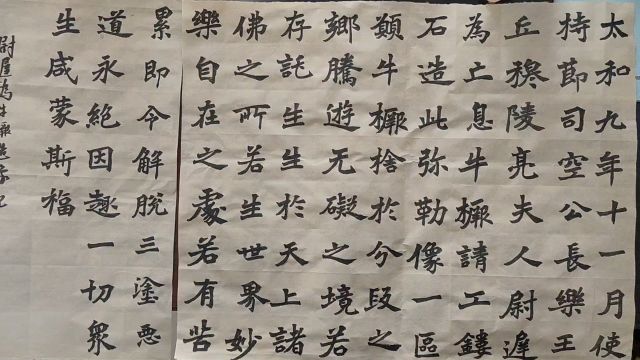 太和九年十一月使
持節司空公長樂王
丘穆陵亮夫人尉遲
為亡息牛橛請工鏤
石造此弥勒像一區
願牛橛捨於分段之
鄉騰遊无礙之境若
存託生生於天上諸
佛之所若生世界妙
樂自在之處若有苦
累即令解脫三塗惡
道永絕因趣一切衆
生咸蒙斯福
尉遲為牛橛造像記